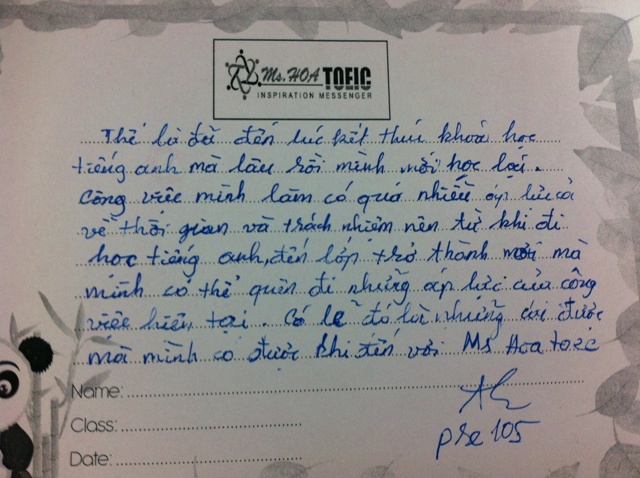 Ms. HOA TOEIC
INSPIRATION MESSENGER
Thế là đã đến lúc kết thúc khoá học
tiếng anh mà lâu rồi mình mới học lại.
Công việc mình làm có quá nhiều áp lực cả
về thời gian và trách nhiệm nên từ khi đi
học tiếng anh, đến lớp trở thành nơi mà
mình có thể quên đi những áp lực của công
việc hiện tại. Có lẽ đó là những cái được
mà mình có được khi đến với Ms Hoa toeic
Name:
Class:
pre 105
Date: